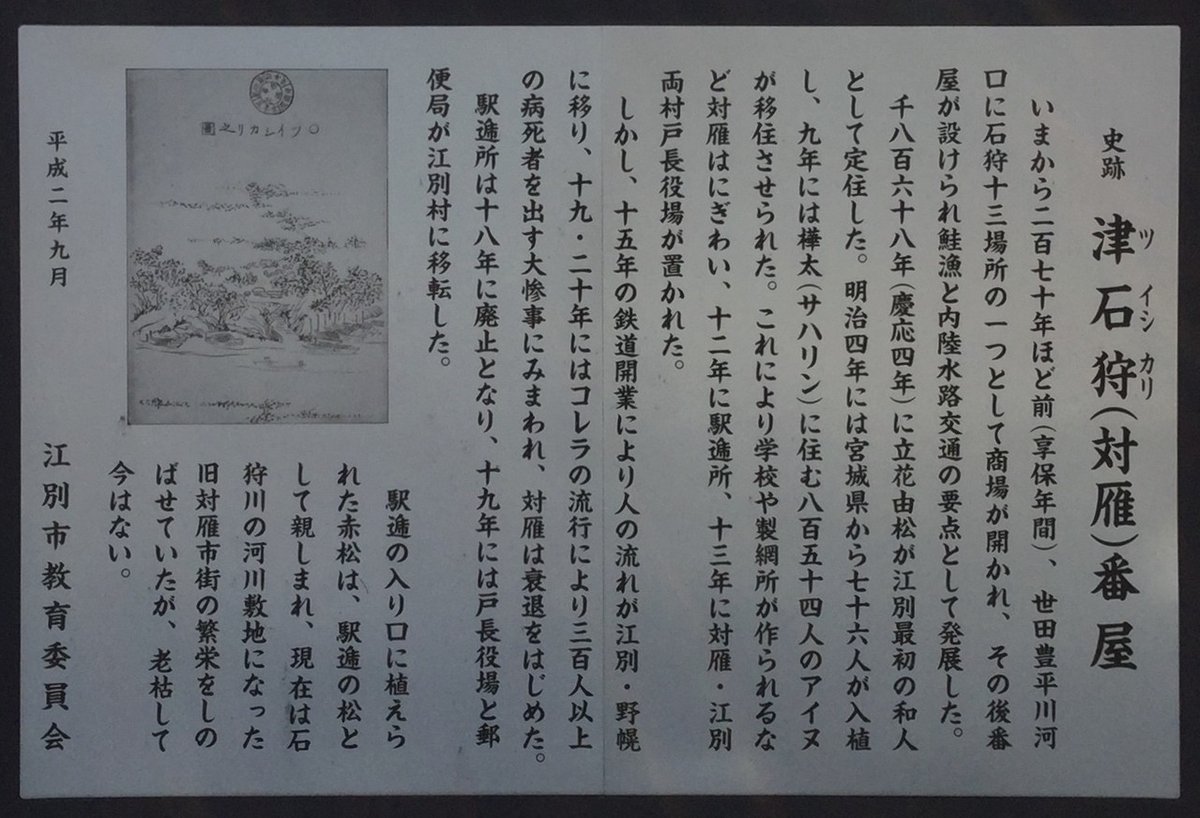 史跡 津石狩(対雁)番屋
ツ イシ カリ
いまから二百七十年ほど前(享保年間)、世田豊平川河
口に石狩十三場所の一つとして商場が開かれ、その後番
屋が設けられ鮭漁と内陸水路交通の要点として発展した。
千八百六十八年(慶応四年)に立花由松が江別最初の和人
として定住した。明治四年には宮城県から七十六人が入植
し、九年には樺太(サハリン)に住む八百五十四人のアイヌ
が移住させられた。これにより学校や製網所が作られるな
ど対雁はにぎわい、十二年に駅逓所、十三年に対雁・江別
両村戸長役場が置かれた。
しかし、十五年の鉄道開業により人の流れが江別・野幌
に移り、十九・二十年にはコレラの流行により三百人以上
の病死者を出す大惨事にみまわれ、対雁は衰退をはじめた。
駅逓所は十八年に廃止となり、十九年には戸長役場と郵
便局が江別村に移転した。
○ツイシカリ之圖
駅逓の入り口に植えら
れた赤松は、駅逓の松と
して親しまれ、現在は石
狩川の河川敷地になった
旧対雁市街の繁栄をしの
ばせていたが、老枯して
今はない。
平成二年九月
江別市教育委員会